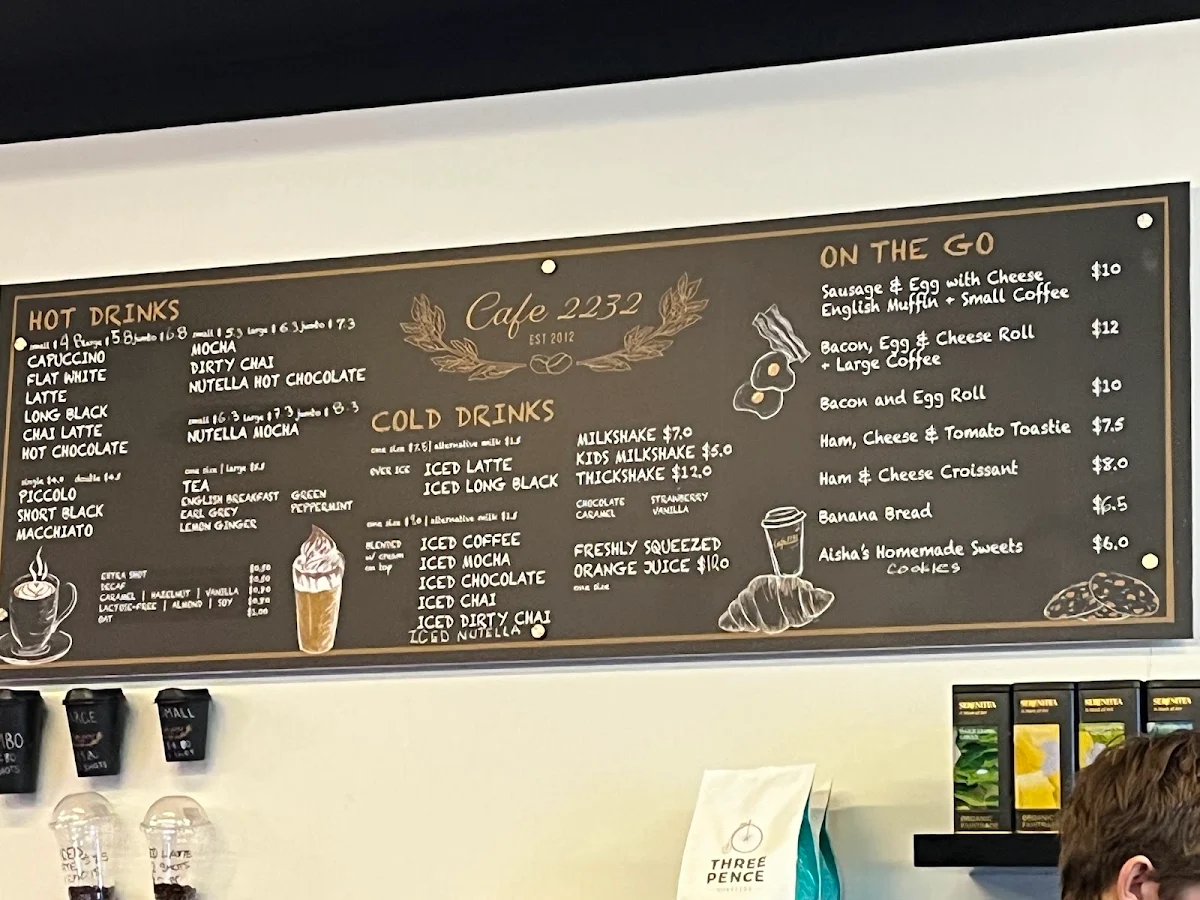 HOT DRINKS
small $4.8 large $5.8 jumbo $6.8
CAPUCCINO
FLAT WHITE
LATTE
LONG BLACK
CHAI LATTE
HOT CHOCOLATE
single $4.0 double $4.5
PICCOLO
SHORT BLACK
MACCHIATO
small $5.3 large $6.3 jumbo $7.3
MOCHA
DIRTY CHAI
NUTELLA HOT CHOCOLATE
small $6.3 large $7.3 jumbo $8.3
NUTELLA MOCHA
one size | large
TEA
ENGLISH BREAKFAST
EARL GREY
LEMON GINGER
GREEN
PEPPERMINT
EXTRA SHOT $0.50
DECAF $0.50
CARAMEL | HAZELNUT | VANILLA $0.90
LACTOSE-FREE | ALMOND | SOY $0.90
OAT $1.00
Cafe 2232
EST 2012
COLD DRINKS
one size $7.5 | alternative milk $1.5
OVER ICE
ICED LATTE
ICED LONG BLACK
one size | alternative milk $1.5
BLENDED
w/ cream
on top
ICED COFFEE
ICED MOCHA
ICED CHOCOLATE
ICED CHAI
ICED DIRTY CHAI
ICED NUTELLA
MILKSHAKE $7.0
KIDS MILKSHAKE $5.0
THICKSHAKE $12.0
CHOCOLATE STRAWBERRY
CARAMEL VANILLA
FRESHLY SQUEEZED
ORANGE JUICE
one size
ON THE GO
Sausage & Egg with Cheese $10
English Muffin + Small Coffee
Bacon, Egg & Cheese Roll $12
+ Large Coffee
Bacon and Egg Roll $10
Ham, Cheese & Tomato Toastie $7.5
Ham & Cheese Croissant $8.0
Banana Bread $6.5
Aisha's Homemade Sweets $6.0
Cookies
SERENITEA
SERENITEA
SERENITEA
SERENITEA
ORGANIC
ORGANIC
THREE
PENCE
ROASTERS